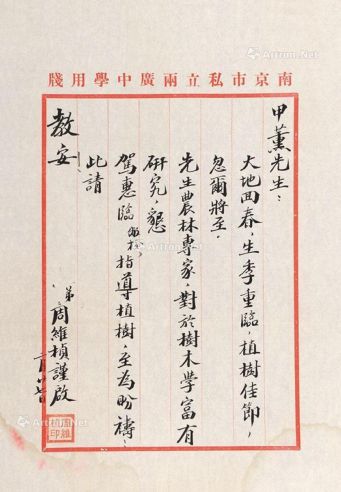 南京市私立兩廣中學用牋
甲薰先生：
大地回春，生季重臨，植樹佳節，
忽爾將至。
先生農林專家，對於樹木學富有
研究，懇
駕惠臨敝校，指導植樹，至為盼禱。
此請
教安
弟
周維楨謹啟
周維楨印